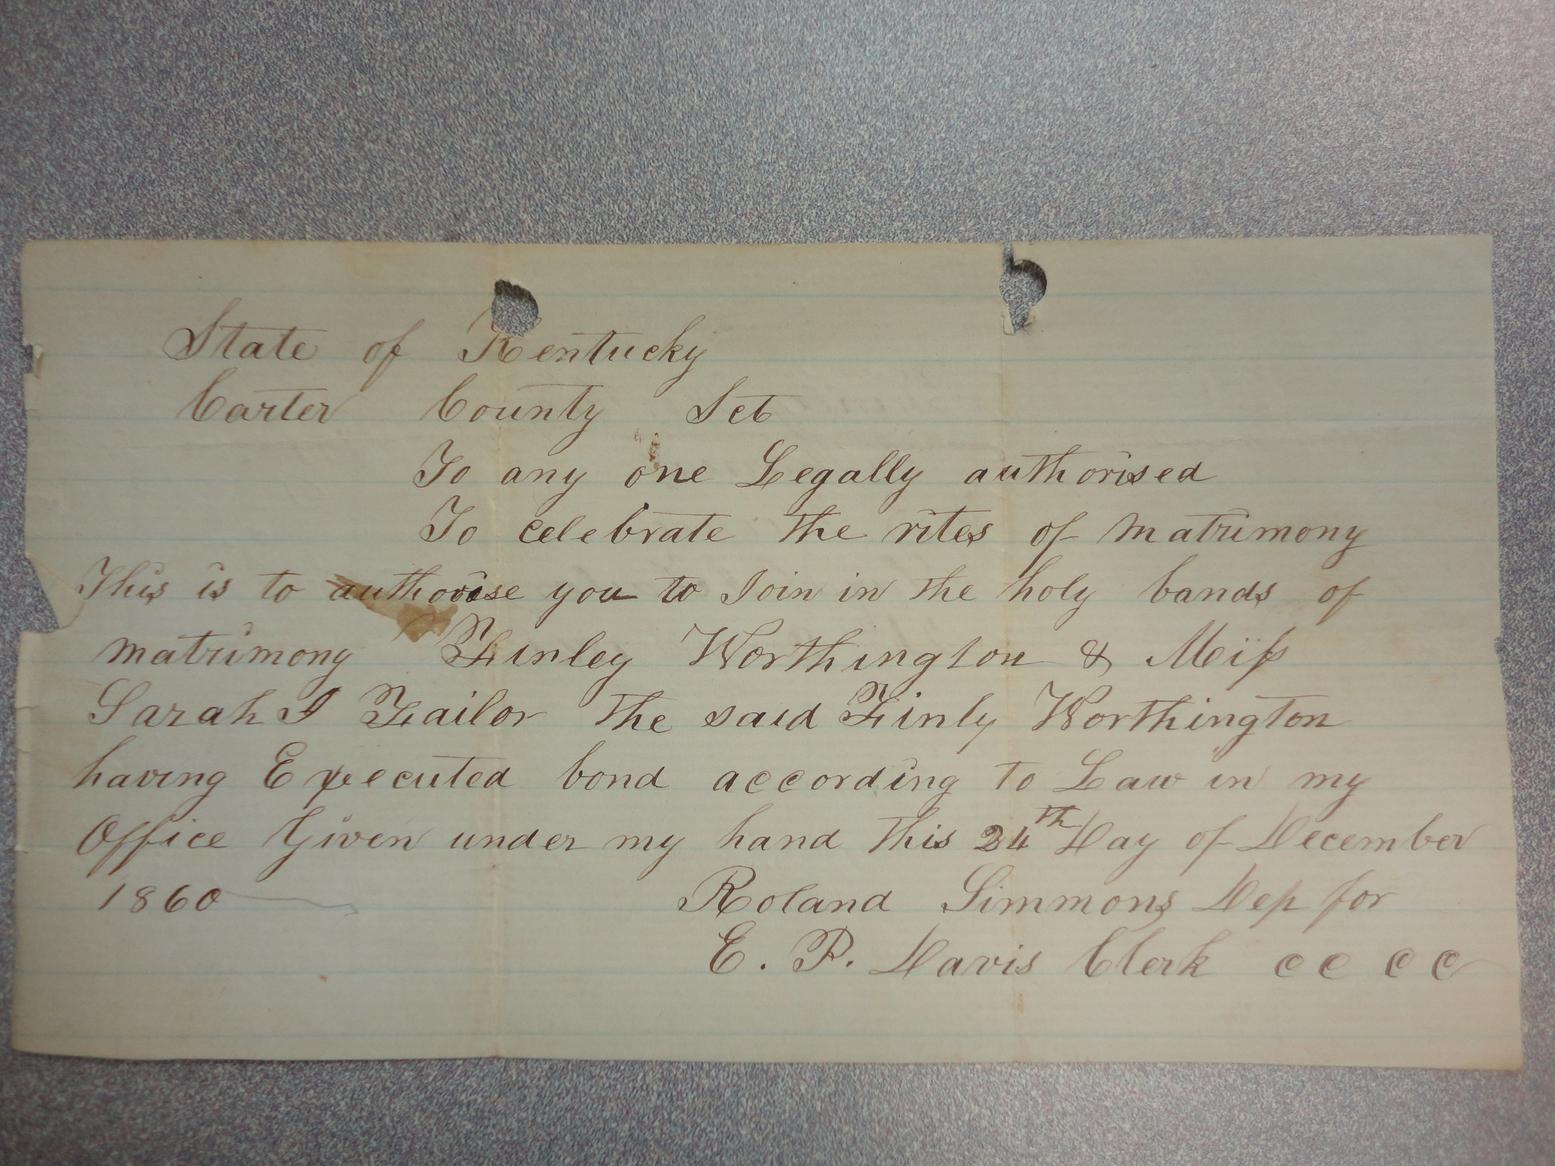 State of Kentucky
Carter County Sct
To any one Legally authorised
To celebrate the rites of matrimony
This is to authorise you to Join in the holy bands of
matrimony Finley Worthington & Miss
Sarah J Failor the said Finly Worthington
having Executed bond according to Law in my
Office Given under my hand this 24th Day of December
1860 Roland Simmons Dep for
E. P. Davis Clerk C C C C